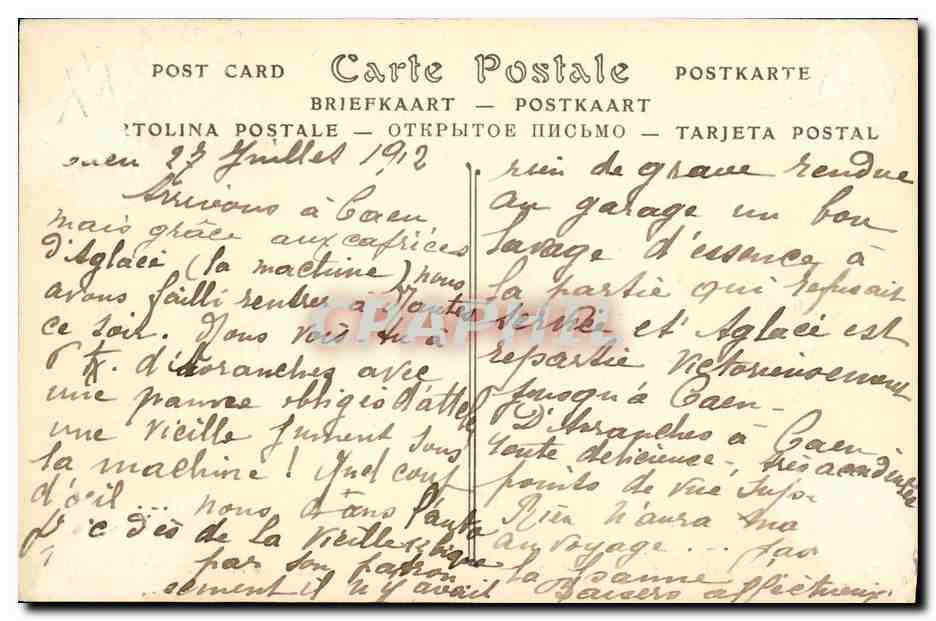 POST CARD Carte Postale POSTKARTE
BRIEFKAART — POSTKAART
RTOLINA POSTALE — ОТКРЫТОЕ ПИСЬМО — TARJETA POSTAL
27 Juillet 1912
Arrivons à Caen
mais grâce aux caprices
d'Aglaée (la machine) nous
avons failli rentrer à Nantes
ce soir. Nous vois tu à
d'Avranches avec
une panne obligés d'atteler
une vieille jument sous
la machine ! Quel coup
d'œil ... nous dans l'auto
de la vieille
par son patron
il n'y avait
rien de grave rendue
au garage un bon
lavage d'essence à
la partie qui refusait
service et Aglaée est
repartie victorieusement
jusqu'à Caen -
D'Avranches à Caen
route délicieuse -, très accidentée
points de vue
Rien n'aura
au voyage ...
la panne
Baisers affectueux
CPAPHIL